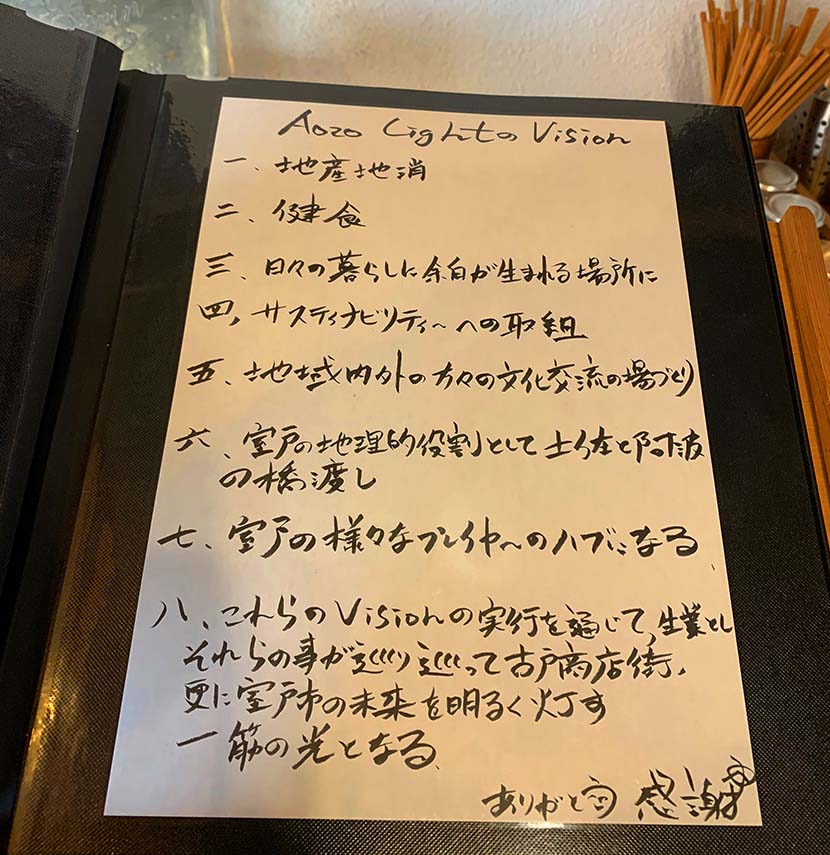 Aozo Lightの Vision
一、地産地消
二、健食
三、日々の暮らしに余白が生まれる場所に
四、サスティナビリティーへの取組
五、地域内外の方々の文化交流の場づくり
六、室戸の地理的役割として土佐と阿波
の橋渡し
七、室戸の様々なプレイヤーのハブになる
八、これらのVisionの実行を通じて、生業とし
それらの事が巡り巡って吉戸商店街、
更に室戸市の未来を明るく灯す
一筋の光となる
ありがと 感謝